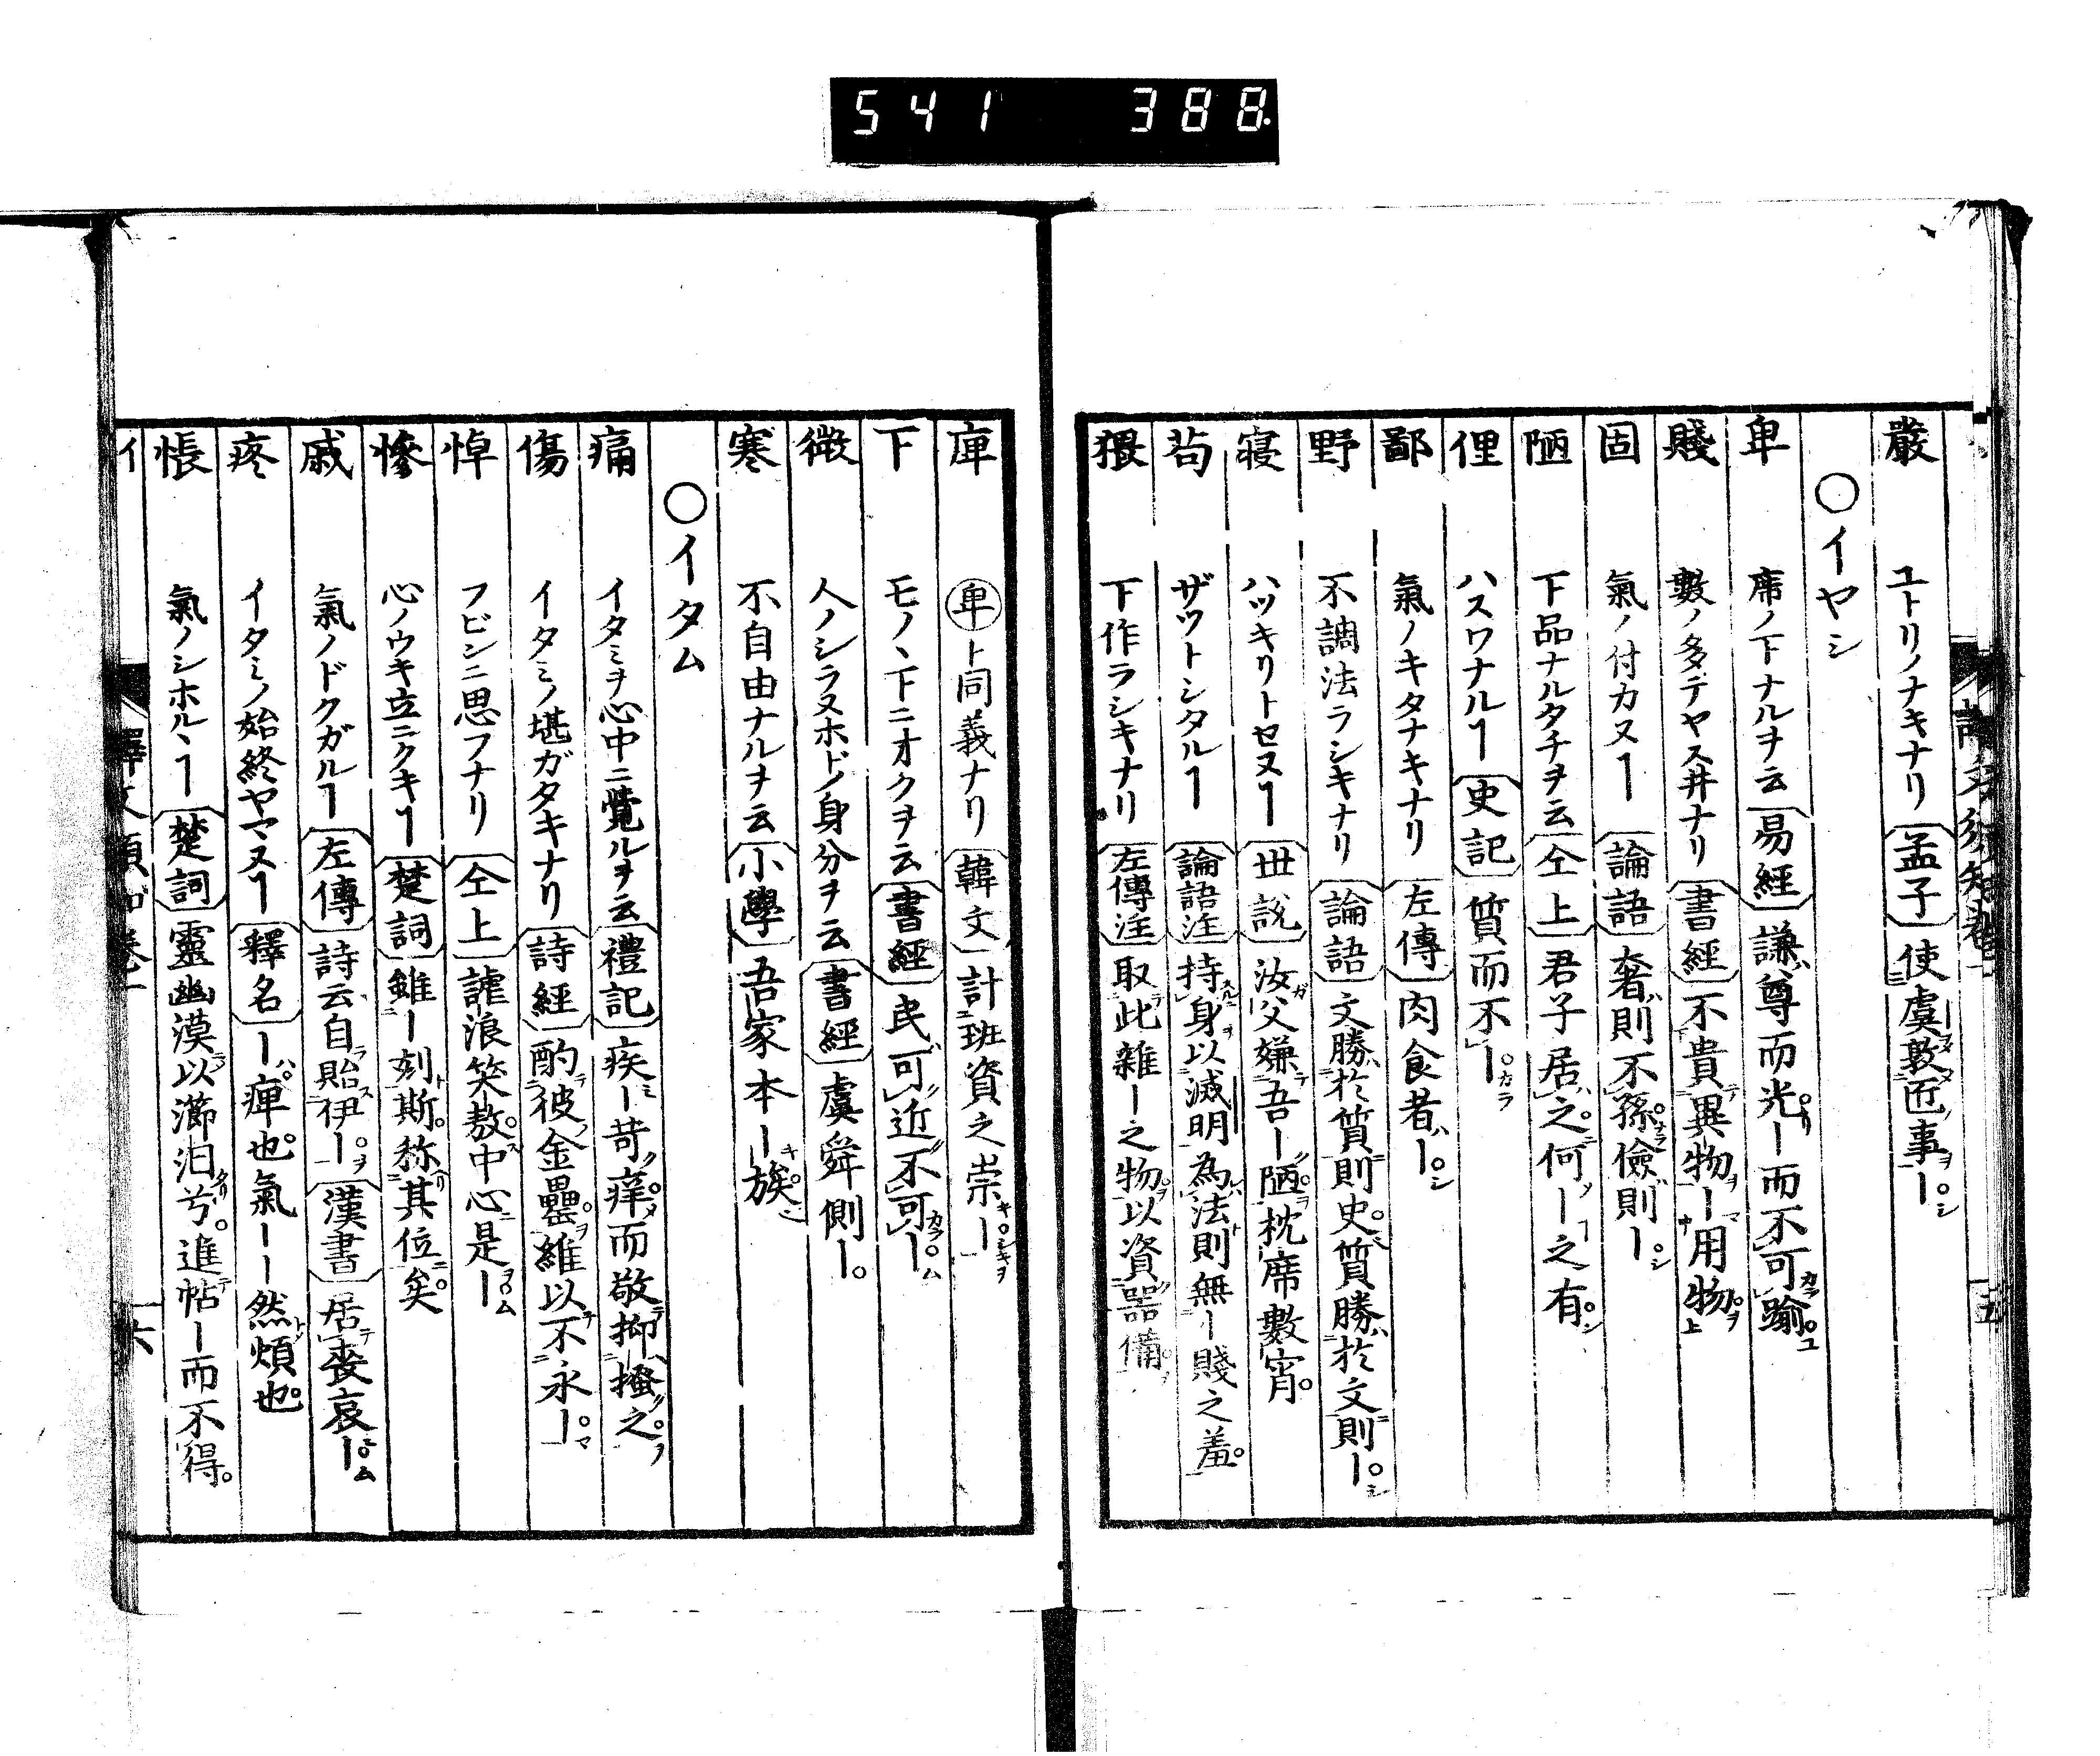 541 388
嚴 ユトリノナキナリ 孟子 使虞敦匠事ー
○イヤシ
卑 席ノ下ナルヲ云 易經 謙尊而光ー而不可踰
賤 數ノ多デヤス井ナリ 書經 不貴異物ー用物
固 氣ノ付カヌヿ 論語 奢則不孫儉則ー
陋 下品ナルタチヲ云 仝上 君子居之何ー之有
俚 ハスワナルヿ 史記 質而不ー
鄙 氣ノキタナキナリ 左傳 肉食者ー
野 不調法ラシキナリ 論語 文勝於質則史質勝於文則ー
寢 ハツキリトセヌヿ 世説 汝父嫌吾ー陋枕席數宵
苟 ザツトシタルヿ 論語注 持身以滅明為法則無ー賤之羞
猥 下作ラシキナリ 左傳注 取此雜ー之物以資噐備
庳 卑ト同義ナリ 韓文 計班資之崇ー
下 モノヽ下ニオクヲ云 書經 民可近不可ー
微 人ノシラヌホドノ身分ヲ云 書經 虞舜側ー
寒 不自由ナルヲ云 小學 吾家本ー族
○イタム
痛 イタミヲ心中ニ覺ルヲ云 禮記 疾ー苛痒而敬抑搔之
傷 イタミノ堪ガタキナリ 詩經 酌彼金罍維以不永ー
悼 フビンニ思フナリ 仝上 謔浪笑敖中心是ー
慘 心ノウキ立ニクキヿ 楚詞 雖ー刻斯称其位矣
戚 氣ノドクガルヿ 左傳 詩云自貽伊ー 漢書 居喪哀ー
疼 イタミノ始終ヤマヌヿ 釋名 ー痺也氣ーー然煩也
悵 氣ノシホルヽヿ 楚詞 靈幽漠以㵧汨兮進帖ー而不得
六